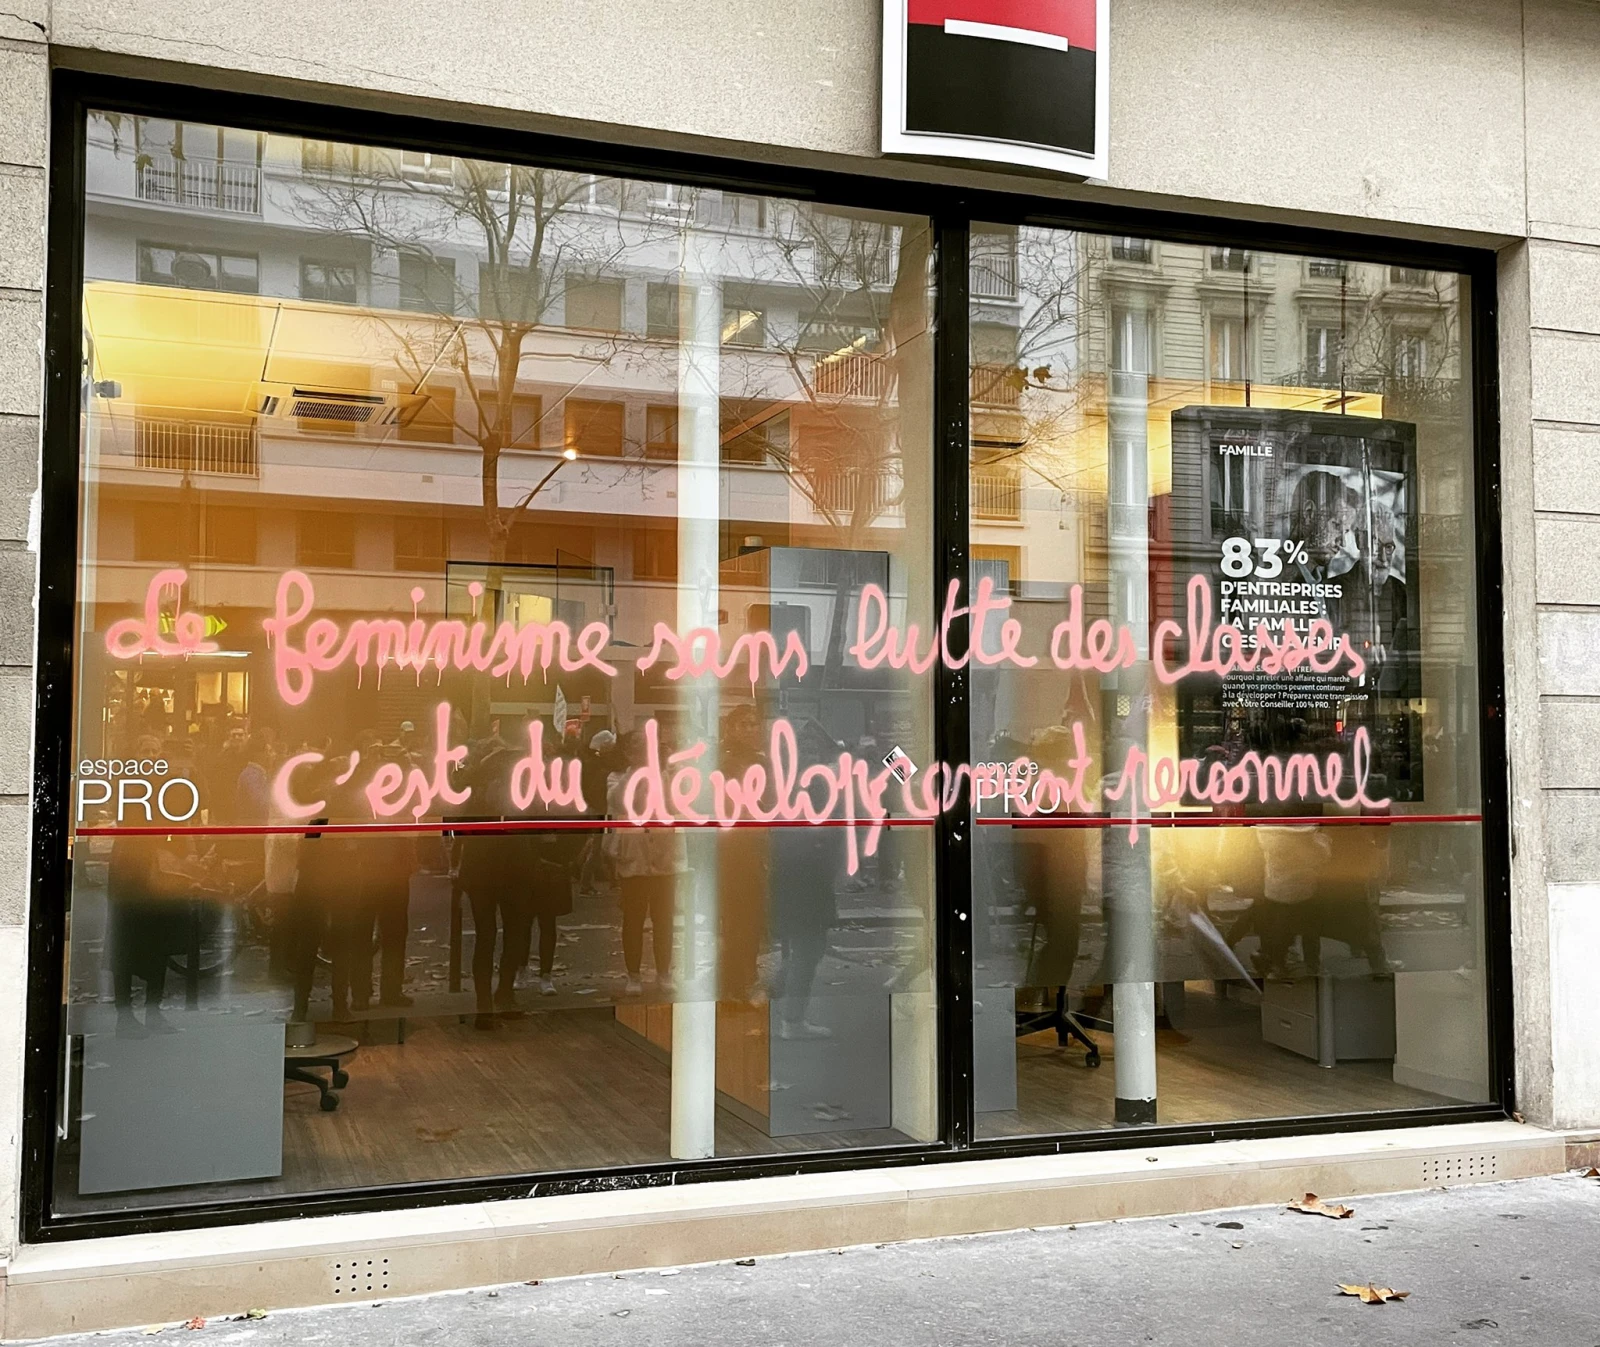 FAMILLE
83%
D'ENTREPRISES
FAMILIALES :
LA FAMILLE
C'EST L'AVENIR
Pourquoi arrêter une affaire qui marche
quand vos proches peuvent continuer
à la développer ? Préparez votre transmission
avec votre Conseiller 100 % PRO.
Le feminisme sans lutte des classes
c'est du développement personnel
espace
PRO
espace
PRO